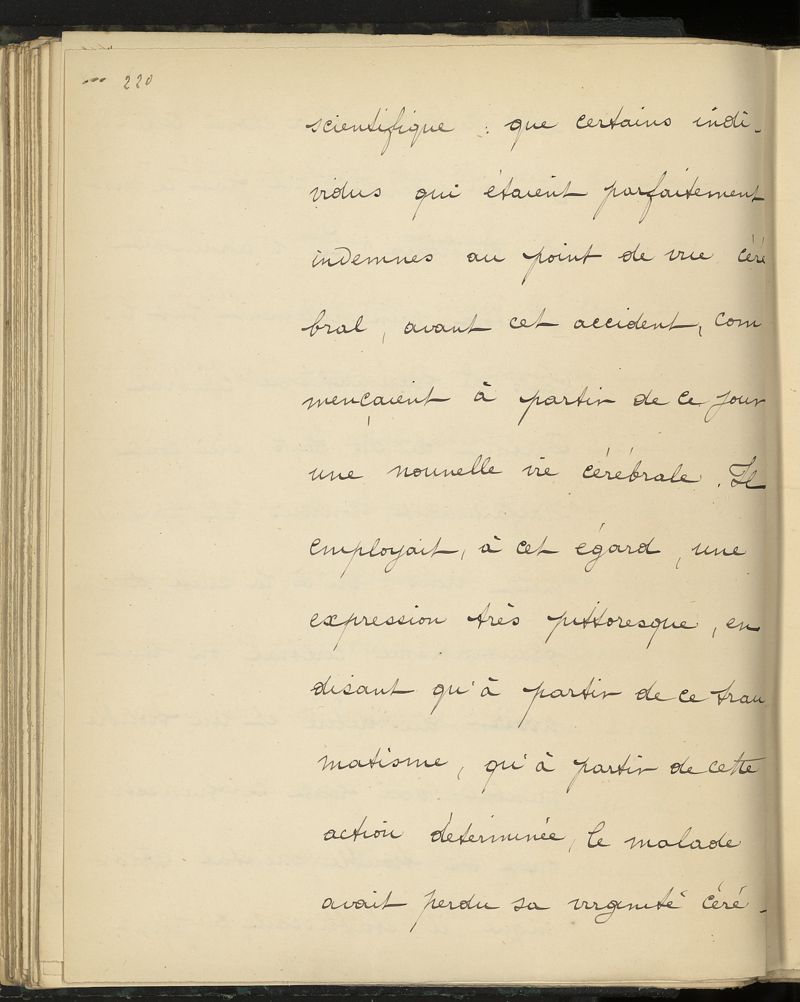 220
scientifique : que certains indi-
vidus qui étaient parfaitement
indemnes au point de vue céré
bral, avant cet accident, com
mençaient à partir de ce jour
une nouvelle vie cérébrale. Il
employait, à cet égard, une
expression très pittoresque, en
disant qu'à partir de ce trau
matisme, qu'à partir de cette
action déterminée, le malade
avait perdu sa virginité céré-